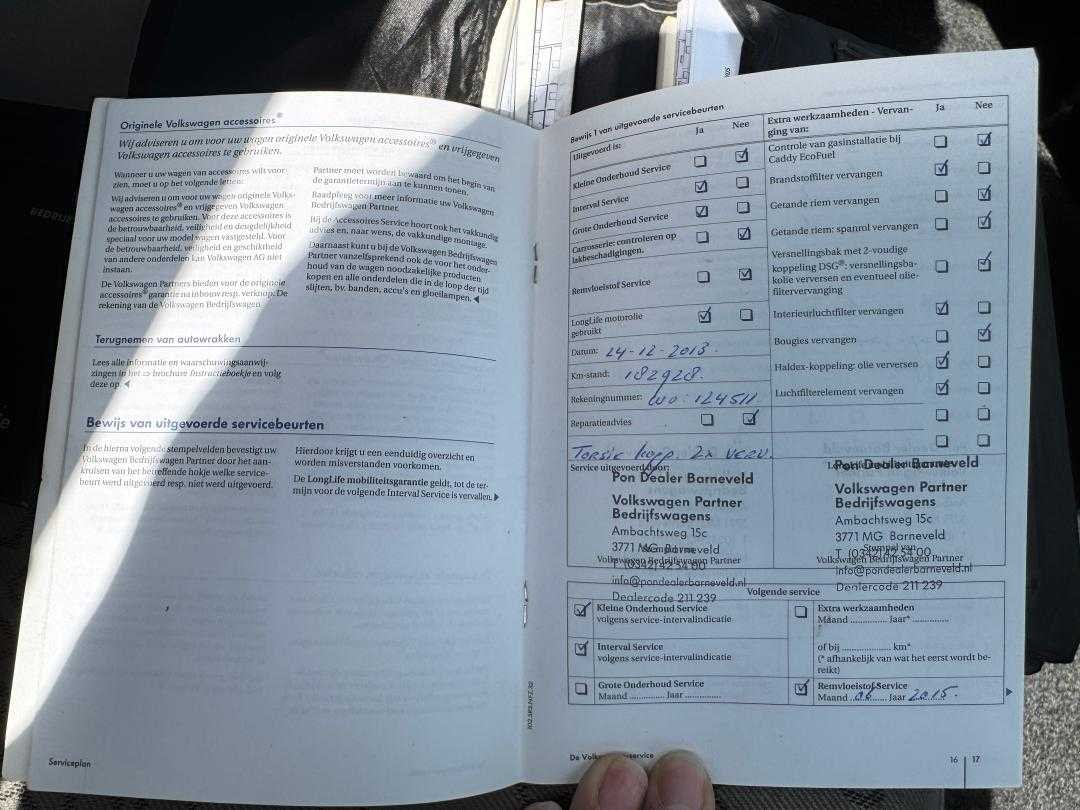 Originele Volkswagen accessoires®
Wij adviseren u om voor uw wagen originele Volkswagen accessoires® en vrijgegeven
Volkswagen accessoires te gebruiken.
Wanneer u uw wagen van accessoires wilt voor-
zien, moet u op het volgende letten:
Wij adviseren u om voor uw wagen originele Volks-
wagen accessoires® en vrijgegeven Volkswagen
accessoires te gebruiken. Voor deze accessoires is
de betrouwbaarheid, veiligheid en deugdelijkheid
speciaal voor uw model wagen vastgesteld. Voor
de betrouwbaarheid, veiligheid en geschiktheid
van andere onderdelen kan Volkswagen AG niet
instaan.
De Volkswagen Partners bieden voor de originele
accessoires® garantie na inbouw resp. verkoop. De
rekening van de Volkswagen Bedrijfswagen
Partner moet worden bewaard om het begin van
de garantietermijn aan te kunnen tonen.
Raadpleeg voor meer informatie uw Volkswagen
Bedrijfswagen Partner.
Bij de Accessoires Service hoort ook het vakkundig
advies en, naar wens, de vakkundige montage.
Daarnaast kunt u bij de Volkswagen Bedrijfswagen
Partner vanzelfsprekend ook de voor het onder-
houd van de wagen noodzakelijke producten
kopen en alle onderdelen die in de loop der tijd
slijten, bv. banden, accu's en gloeilampen.
Terugnemen van autowrakken
Lees alle informatie en waarschuwingsaanwij-
zingen in het ⇒ brochure Instructieboekje en volg
deze op.
Bewijs van uitgevoerde servicebeurten
In de hierna volgende stempelvelden bevestigt uw
Volkswagen Bedrijfswagen Partner door het aan-
kruisen van het betreffende hokje welke service-
beurt werd uitgevoerd resp. niet werd uitgevoerd.
Hierdoor krijgt u een eenduidig overzicht en
worden misverstanden voorkomen.
De LongLife mobiliteitsgarantie geldt, tot de ter-
mijn voor de volgende Interval Service is vervallen.
Serviceplan
Bewijs 1 van uitgevoerde servicebeurten
Uitgevoerd is: Ja Nee
Kleine Onderhoud Service
Interval Service
Grote Onderhoud Service
Carrosserie: controleren op
lakbeschadigingen.
Remvloeistof Service
LongLife motorolie
gebruikt
Datum: 24-12-2013.
Km-stand: 182928.
Rekeningnummer: wo: 124511
Reparatieadvies
2x verv.
Service uitgevoerd door:
Pon Dealer Barneveld
Volkswagen Partner
Bedrijfswagens
Ambachtsweg 15c
3771 MG Barneveld
T (0342) 42 54 00
Volkswagen Bedrijfswagen Partner
info@pondealerbarneveld.nl
Dealercode 211 239
Extra werkzaamheden - Vervan-
ging van: Ja Nee
Controle van gasinstallatie bij
Caddy EcoFuel
Brandstoffilter vervangen
Getande riem vervangen
Getande riem: spanrol vervangen
Versnellingsbak met 2-voudige
koppeling DSG®: versnellingsba-
kolie verversen en eventueel olie-
filtervervanging
Interieurluchtfilter vervangen
Bougies vervangen
Haldex-koppeling: olie verversen
Luchtfilterelement vervangen
Pon Dealer Barneveld
Volkswagen Partner
Bedrijfswagens
Ambachtsweg 15c
3771 MG Barneveld
Stempel van
T (0342) 42 54 00
Volkswagen Bedrijfswagen Partner
info@pondealerbarneveld.nl
Dealercode 211 239
Volgende service
Kleine Onderhoud Service
volgens service-intervalindicatie
Interval Service
volgens service-intervalindicatie
Grote Onderhoud Service
Maand ............ Jaar ............
Extra werkzaamheden
Maand ............ Jaar* ............
of bij ................ km*
(* afhankelijk van wat het eerst wordt be-
reikt)
Remvloeistof Service
Maand 06 Jaar 2015.
16 | 17